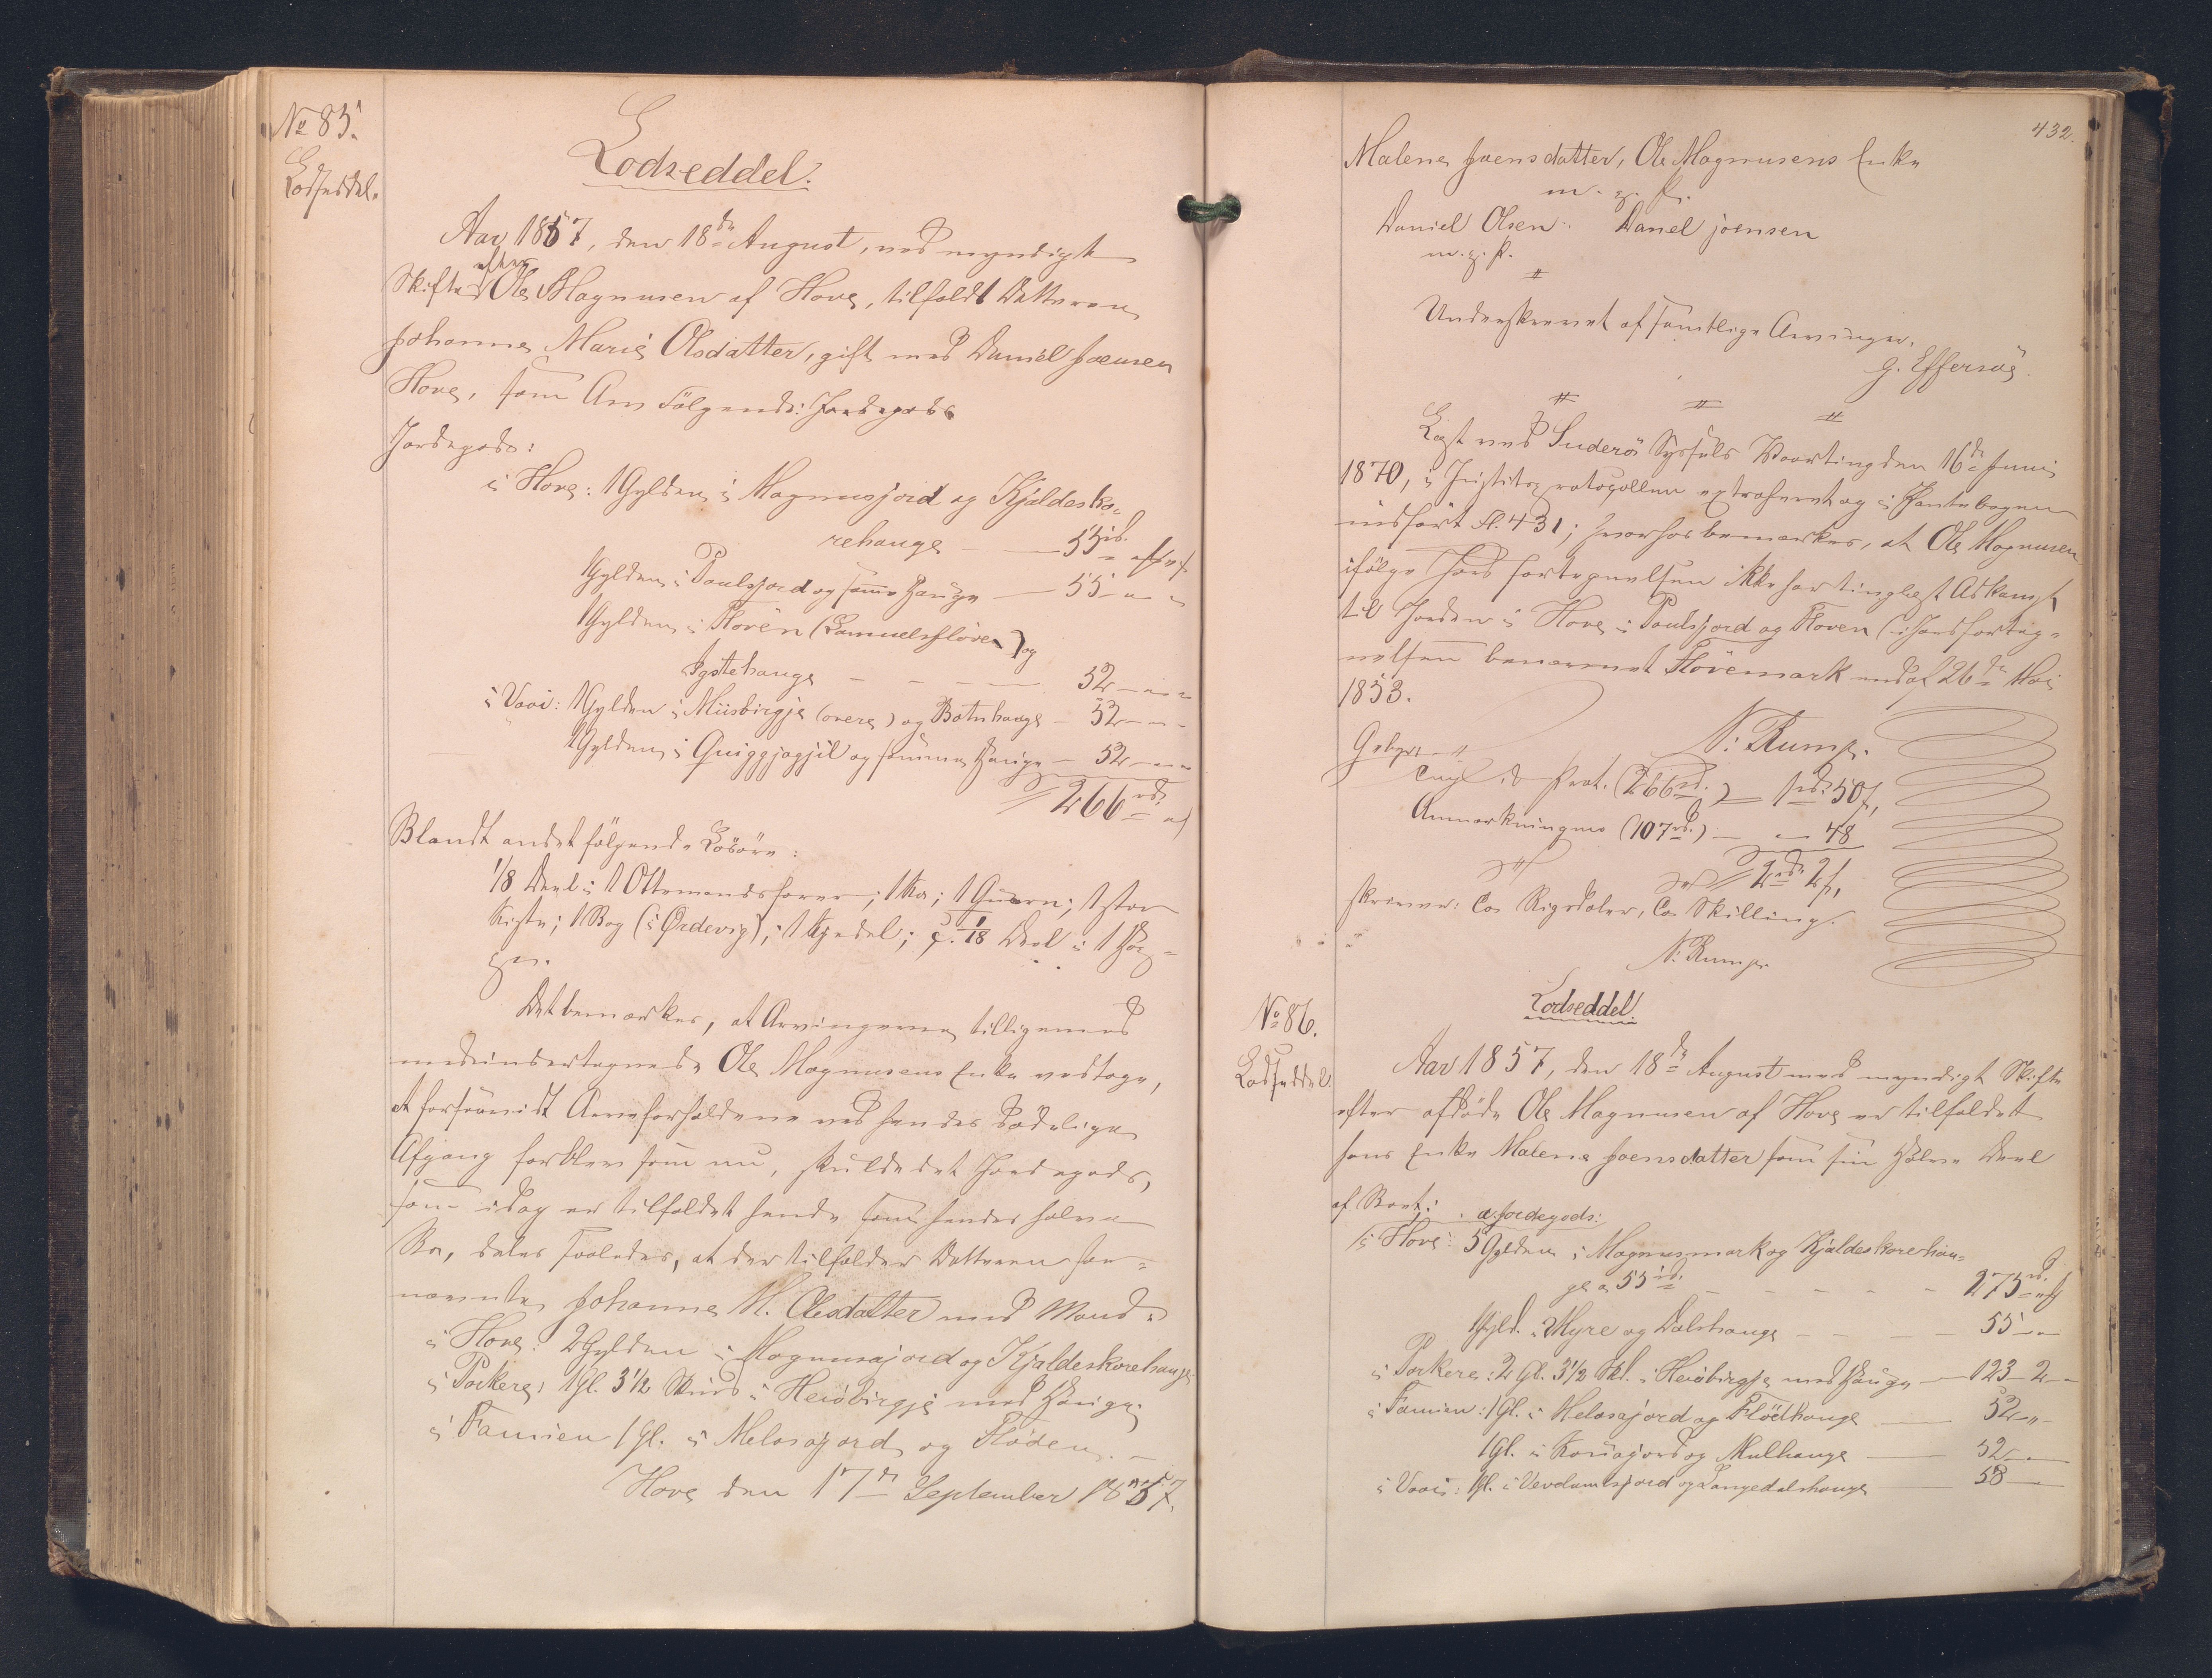 No 85.
Lodseddel.
Lodseddel.
Aar 1857, den 18de August, ved myndigt
Skifte efter Ole Magnusen af Hove, tilfaldt Datteren
Johanne Marie Olsdatter, gift med Daniel Joensen
Hove, som Arv følgende: Jordegods
Jordegods:
i Hove: 1 Gylden i Magnusjord og Kjældesko-
rehauge — 55 rd.
1 Gylden i Poulsjord og samme Hauge — 55 — " "
1 Gylden i Fløven (Samuelsfløven) og
Ygstehauge — — — — 52 — " "
i Vaai: 1 Gylden i Miisbirgje (overe) og Botnhauge — 52 — " -
1 Gylden i Quiggjagjil og samme Hauge — 52 — " "
266 rd.
Blandt andet følgende Løsøre:
1/8 Deel i 1 Ottemandsfarer; 1 Ko; 1 Quern; 1 stor
Kiste; 1 Bog (i Ørdevig); 1 Kjedel; 1/18 Deel i 1
Det bemærkes, at Arvingerne tilligemed
medundertegnede Ole Magnusens Enke vedtoge,
at forsaavidt Arveforholdene ved hendes dødelige
Afgang forblev som nu, skulde det Jordegods,
som idag er tilfaldet hende som hendes halve
Bo, deles saaledes, at der tilfalder Datteren for-
nævnte Johanne M. Olesdatter med Mand:
i Hove: 2 Gylden i Magnusajord og Kjældeskorehauge
i Porkere: 1 Gl. 3 1/2 Skind i Heiðbirgje med Hauge;
i Famien 1 Gl. i Melosajord og Fløden. —
Hove den 17de September 1857.
432.
Malene Joensdatter, Ole Magnusens Enke
m. f. P.
Daniel Olsen. Danel joensen
m. f. P.
Underskrevet af samtlige Arvinger.
G. Effersøe.
Læst ved Suderø Syssels Vaarting den 16de Juni
1870, i Justitsprotocollen extraheret og i Pantebogen
indført Fl. 431; hvorhos bemærkes, at Ole Magnusen
ifølge Jordfortegnelsen ikke har tinglæst Adkomst
til Jorden i Hove i Poulsjord og Fløven (i Jordforteg-
nelsen benævnet Flövemark med af 26de Mai
1853.
N: Rump.
Gebyr:
Prot. (266 rd.) — 1 rd. 50 s,
Anmærkningens (107 rd.) — " — 48
2 rd. 2 s,
skriver: To Rigsdaler, To Skilling.
N: Rump.
No 86.
Lodseddel.
Lodseddel.
Aar 1857, den 18de August ved myndigt Skifte
efter afdøde Ole Magnusen af Hove er tilfaldet
hans Enke Malene Joensdatter som sin halve Deel
af Boet: a. Jordegods:
i Hove: 5 Gylden i Magnusmark og Kjældeskorehau-
ge a 55 rd. — — — — — 275 rd.
1 Gyld. i Myre og Dalshauge — — — 55 — "
i Porkere: 2 Gl. 3 1/2 Sk. i Heiðbirgje med Hauge — 123 - 2 —
i Famien: 1 Gl. i Melosajord og Flödhauge — 52 — " -
1 Gl. i og Mulhauge — 52 —
i Vaai: 1 Gl. i og Langedalshauge — 58 —